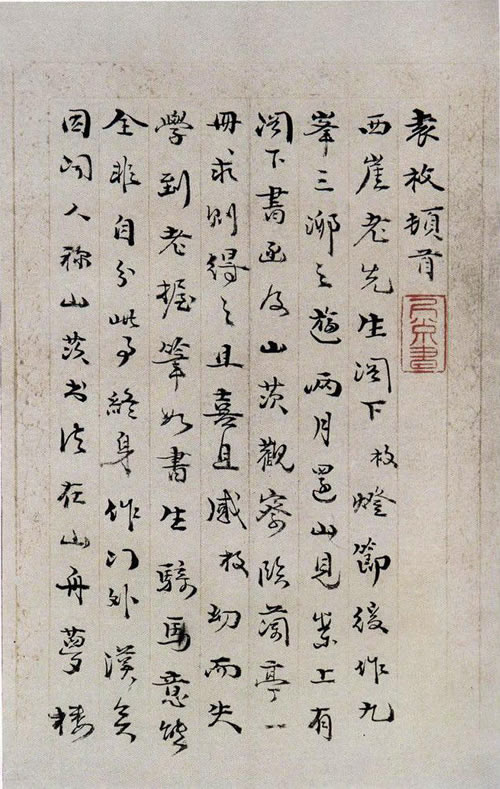 袁枚頓首
西崖老先生閣下枚燈節後作九
峯三泖之遊兩月還山見案上有
閣下書函及山茨觀察臨蘭亭一
冊求則得之且喜且感枚幼而失
學到老握筆如書生騎馬意態
全非自分此事終身作門外漢矣
因聞人称山茨書法在山舟夢樓